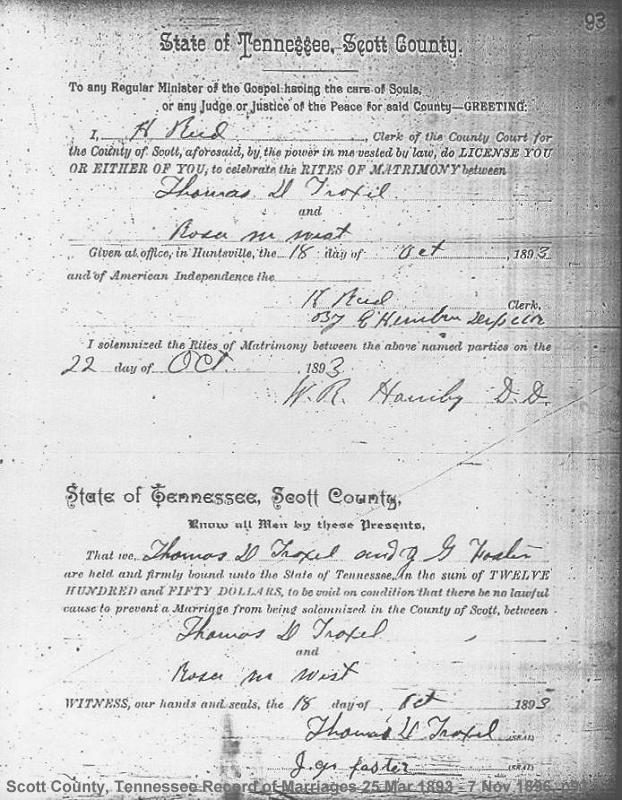 93
State of Tennessee, Scott County.
To any Regular Minister of the Gospel having the care of Souls,
or any Judge or Justice of the Peace for said County—GREETING:
I, H Reed, Clerk of the County Court for
the County of Scott, aforesaid, by the power in me vested by law, do LICENSE YOU
OR EITHER OF YOU, to celebrate the RITES OF MATRIMONY between
Thomas D Troxel
and
Rosa M West
Given at office, in Huntsville, the 18 day of Oct, 1893
and of American Independence the
Reed Clerk.
By E
I solemnized the Rites of Matrimony between the above named parties on the
22 day of Oct. 1893
W. R. Hamby D. D.
State of Tennessee, Scott County,
Know all Men by these Presents,
That we, Thomas D Troxel and G Foster
are held and firmly bound unto the State of Tennessee, in the sum of TWELVE
HUNDRED and FIFTY DOLLARS, to be void on condition that there be no lawful
cause to prevent a Marriage from being solemnized in the County of Scott, between
Thomas D Troxel
and
Rosa M West
WITNESS, our hands and seals, the 18 day of Oct 1893
Thomas D Troxel (SEAL)
foster (SEAL)
Scott County, Tennessee Record of Marriages 25 Mar 1893 - 7 Nov 1896,